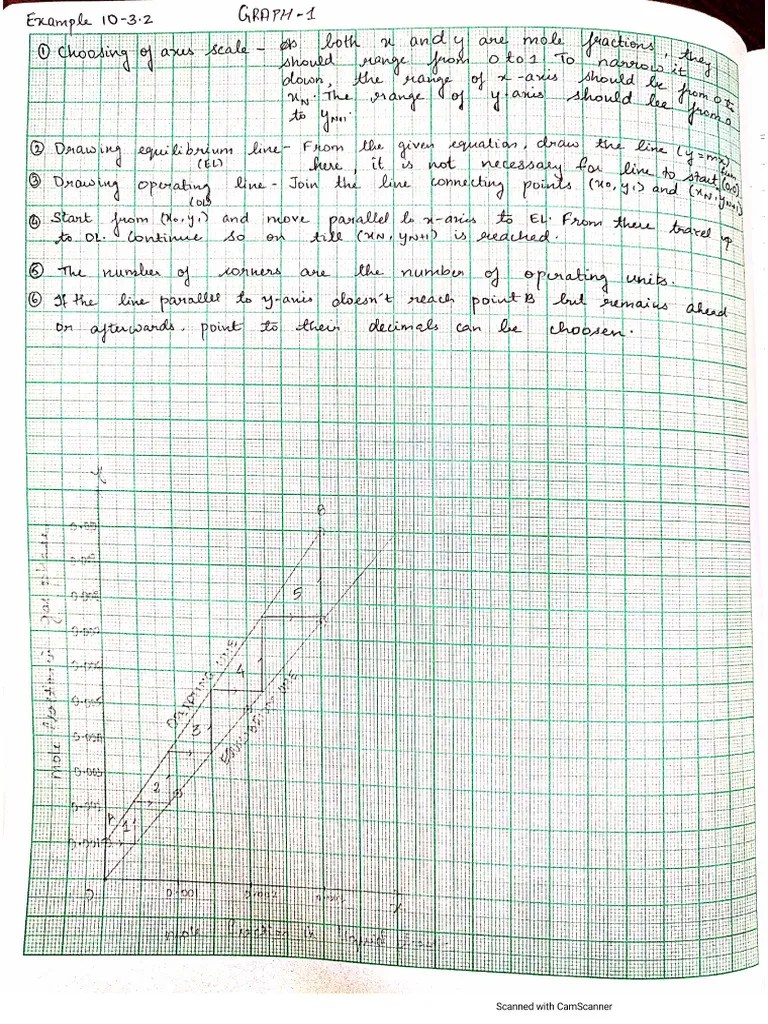 Example 10-3.2
GRAPH-1
① Choosing of axis scale - both x and y are mole fractions, they
should range from 0 to 1 To narrow it
down, the range of x-axis should be from 0 to
xN. The range of y-axis should be from 0
to yN+1.
② Drawing equilibrium line - From the given equation, draw the line (y=mx)
(EL) here, it is not necessary for line to start from (0,0)
③ Drawing operating line - Join the line connecting points (x0, y1) and (xN, yN+1)
(OL)
④ Start from (x0, y1) and move parallel to x-axis to EL. From there travel up
to OL. Continue so on till (xN, yN+1) is reached.
⑤ The number of corners are the number of operating units.
⑥ If the line parallel to y-axis doesn't reach point B but remains ahead
or afterwards, point to their decimals can be choosen.
Y
B
5
OPERATING LINE
4
EQUILIBRIUM LINE
3
2
A
1
O
0.001
0.002
X
mole fraction in gas phase
mole fraction in liquid
Scanned with CamScanner